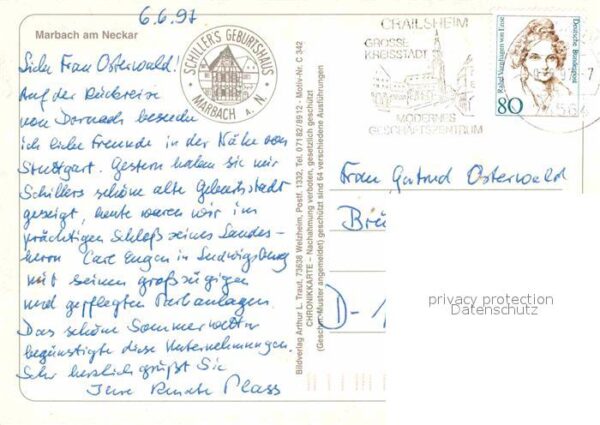 6.6.97
Marbach am Neckar
SCHILLER'S GEBURTSHAUS
MARBACH a. N.
Liebe Frau Osterwald!
Auf der Rückreise
von Dornach besuche
ich liebe Freunde in der Nähe von
Stuttgart. Gestern haben sie mir
Schillers schöne alte Geburtsstadt
gezeigt, heute waren wir im
prächtigen Schloß seines Landes-
herrn Carl Eugen in Ludwigsburg
mit seinen großzügigen
und gepflegten Parkanlagen.
Das schöne Sommerwetter
begünstigte diese Unternehmungen.
Sehr herzlich grüßt Sie
Ihre Renate Plass
Bildverlag Arthur L. Traut, 73638 Welzheim, Postf. 1332, Tel. 07182/8912 - Motiv-Nr. C 342
CHRONIKKARTE - Nachahmung verboten, gesetzlich geschützt
(Gesch.-Muster angemeldet) geschützt sind 64 verschiedene Ausführungen
CRAILSHEIM
GROSSE
KREISSTADT
MODERNES
GESCHÄFTSZENTRUM
Rahel Varnhagen von Ense
Deutsche Bundespost
80
7
Frau Gertrud Osterwald
Brü
D-
privacy protection
Datenschutz